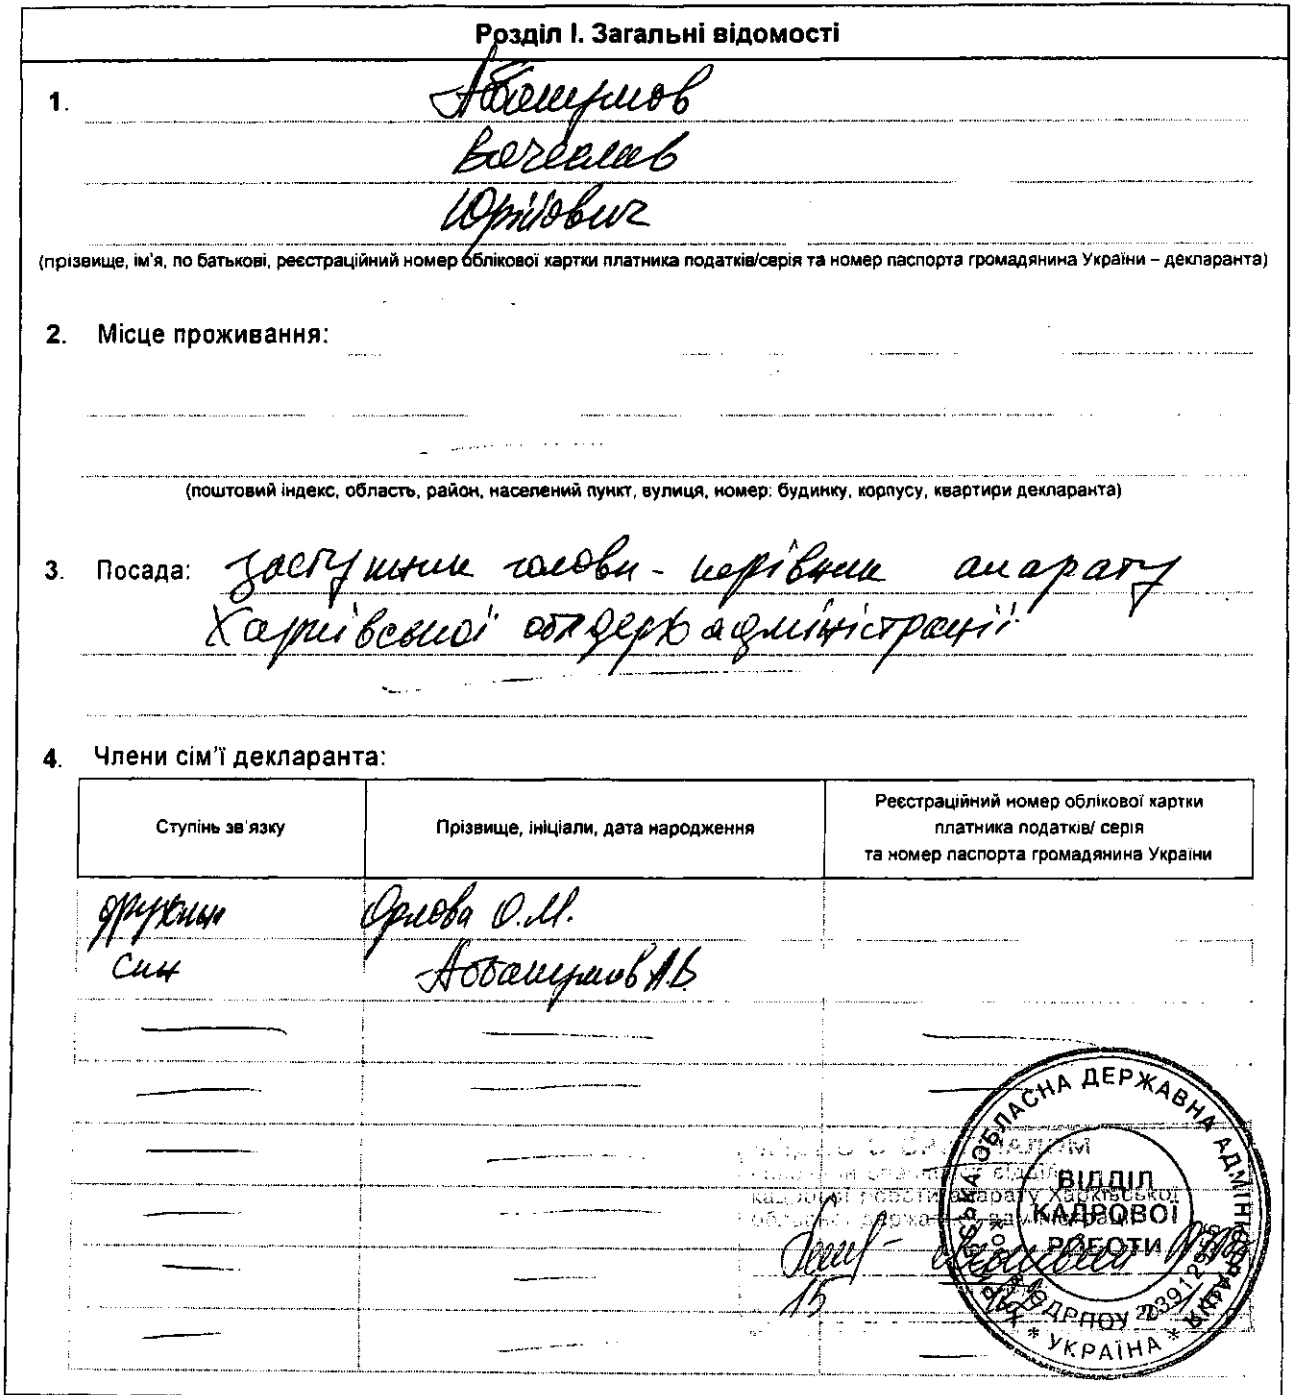 Розділ І. Загальні відомості
1. Аббакумов
Вячеслав
Юрійович
(прізвище, ім'я, по батькові, реєстраційний номер облікової картки платника податків/серія та номер паспорта громадянина України – декларанта)
2. Місце проживання:
(поштовий індекс, область, район, населений пункт, вулиця, номер: будинку, корпусу, квартири декларанта)
3. Посада: заступник голови - керівник апарату
Харківської облдержадміністрації
4. Члени сім'ї декларанта:
Ступінь зв'язку
Прізвище, ініціали, дата народження
Реєстраційний номер облікової картки
платника податків/ серія
та номер паспорта громадянина України
дружина Орлова О.М.
син Аббакумов А.В.
ХАРКІВСЬКА ОБЛАСНА ДЕРЖАВНА АДМІНІСТРАЦІЯ
ВІДДІЛ
КАДРОВОЇ
РОБОТИ
* УКРАЇНА *
кадрової роботи апарату Харківської
обласної державної адміністрації
15